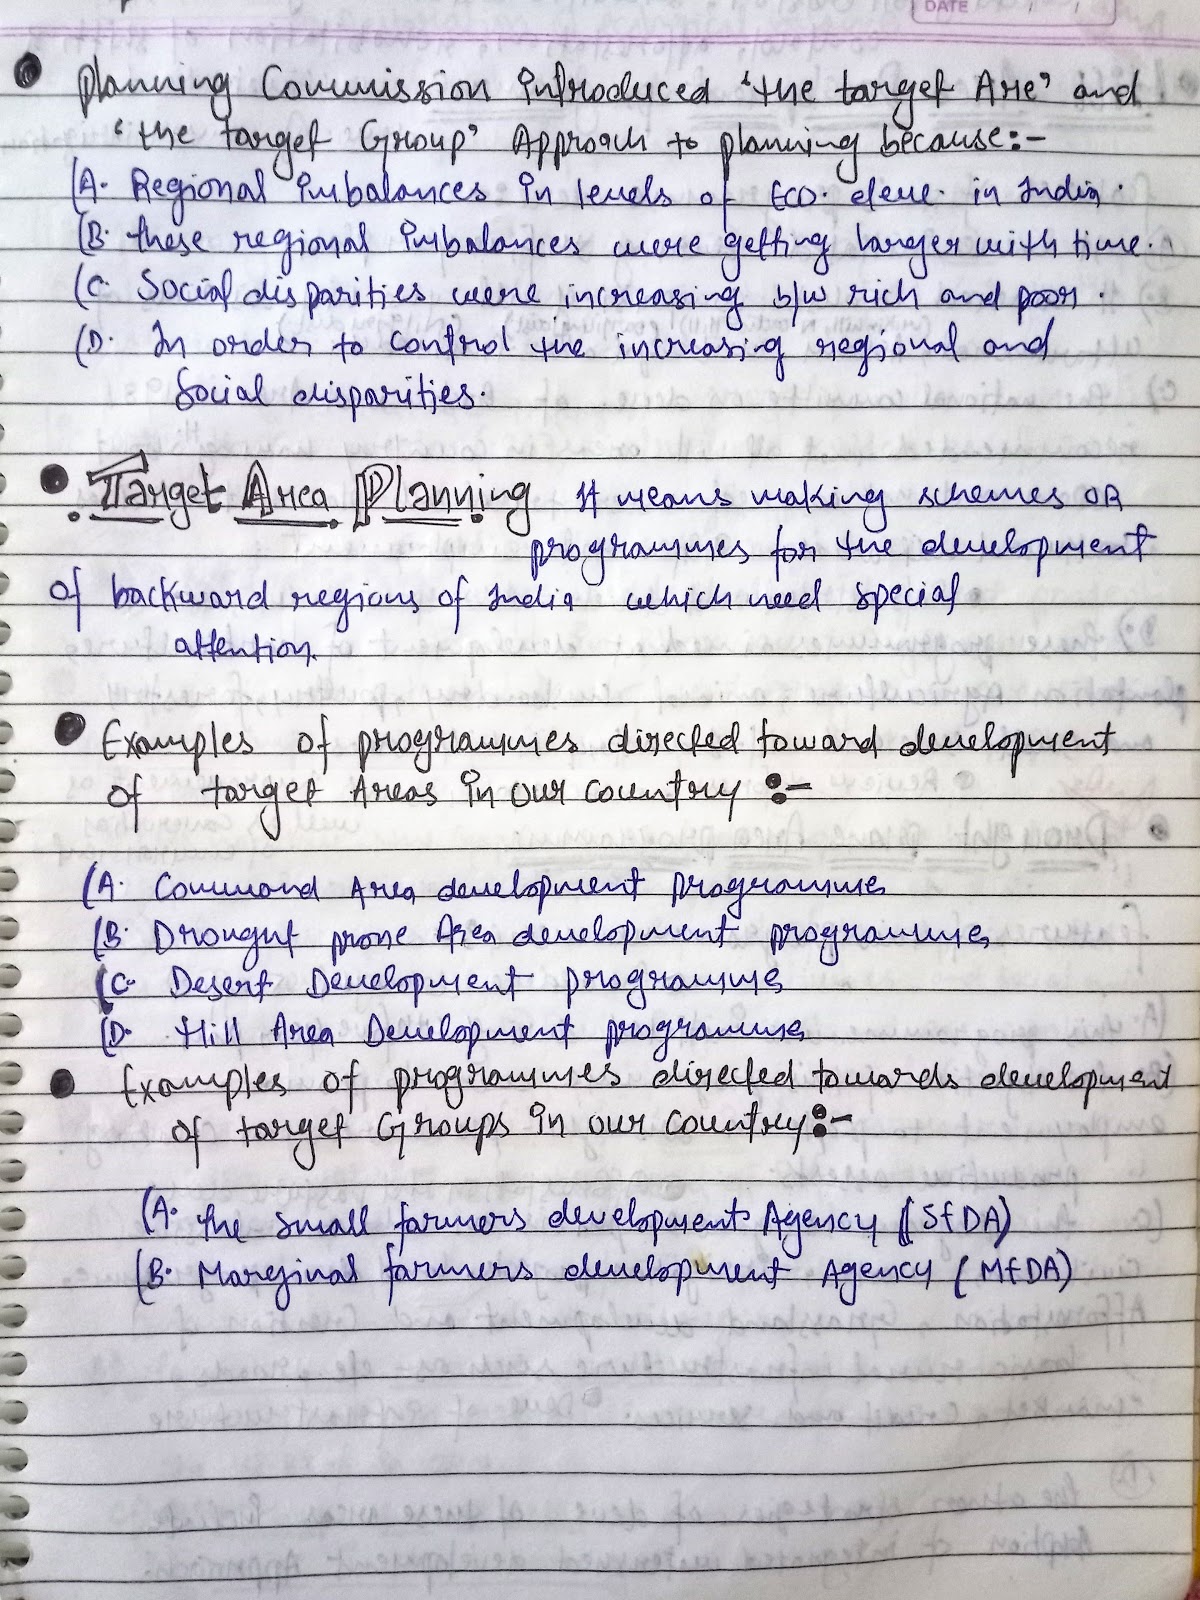 DATE
• Planning Commission introduced 'the target Are' and
'the target Group' Approach to planning because:-
(A. Regional imbalances in levels of ECO. deve. in India.
(B. these regional imbalances were getting larger with time.
(C. Social disparities were increasing b/w rich and poor.
(D. In order to control the increasing regional and
Social disparities.
• Target Area Planning It means making schemes or
programmes for the development
of backward regions of India which need special
attention.
• Examples of programmes directed toward development
of target Areas in our country :-
(A. Command Area development programme
(B. Drought prone Area development programme
(C. Desert Development programme
(D. Hill Area Development programme
• Examples of programmes directed towards development
of target Groups in our country:-
(A. the small farmers development Agency (SFDA)
(B. Marginal farmers development Agency (MFDA)